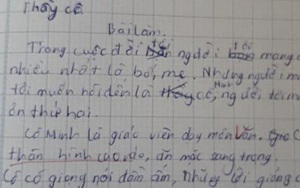 Thầy cô
Bài làm.
Trong cuộc đời người tôi mang ơ
nhiều nhất là bố, mẹ. Nhưng người m
tôi muốn nói đến là cô Minh, người tôi m
ơn thứ hai.
Cô Minh là giáo viên dạy môn Văn.
thân hình cao, ăn mặc sang trọng.
Cô có giọng nói đầm ấm, những lời giảng c